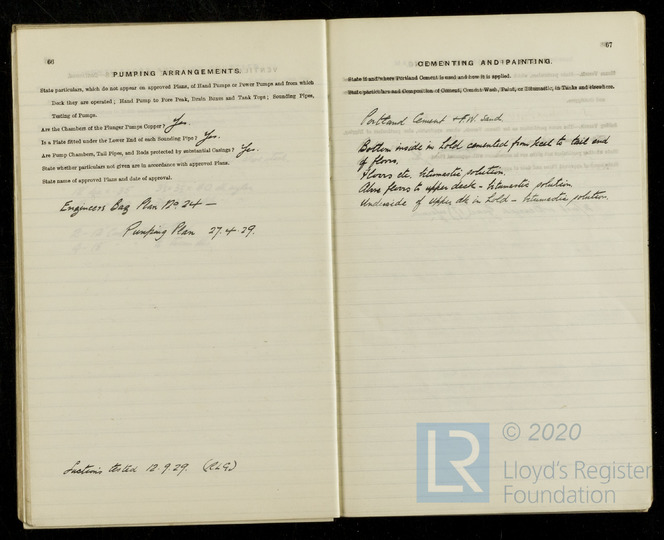 66
PUMPING ARRANGEMENTS.
State particulars, which do not appear on approved Plans, of Hand Pumps or Power Pumps and from which
Deck they are operated; Hand Pump to Fore Peak, Drain Boxes and Tank Tops; Sounding Pipes,
Testing of Pumps.
Are the Chambers of the Plunger Pumps Copper? Yes.
Is a Plate fitted under the Lower End of each Sounding Pipe? Yes.
Are Pump Chambers, Tail Pipes, and Rods protected by substantial Casings? Yes.
State whether particulars not given are in accordance with approved Plans.
State name of approved Plans and date of approval.
Engineers Bag Plan No. 24 —
Pumping Plan 27.4.29.
Suctions tested 12.9.29.
67
CEMENTING AND PAINTING.
State if and where Portland Cement is used and how it is applied.
State particulars and Composition of Cement, Cement Wash, Paint, or Bitumastic, in Tanks and elsewhere.
Portland Cement & F.W. Sand.
Bottom inside in hold cemented from keel to tail end
of floors.
Floors etc. bitumastic solution.
Above floors to upper deck - bitumastic solution
Underside of upper dk in hold - bitumastic solution.
LR © 2020
Lloyd's Register
Foundation